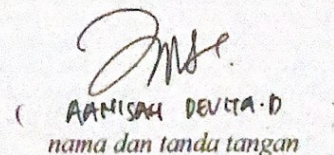 ( AANISAH DEVITA.D
nama dan tanda tangan